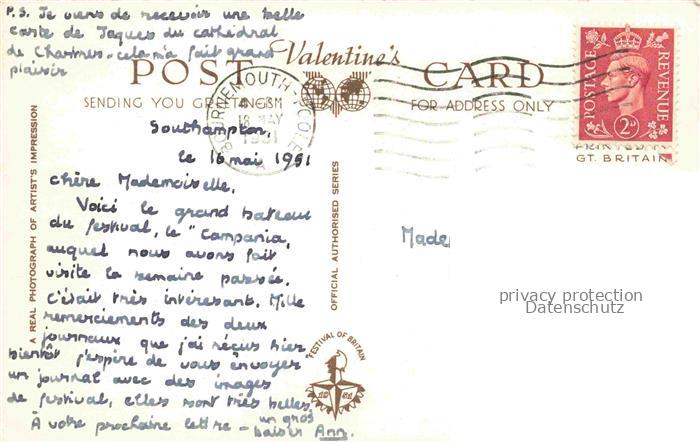 P.S. Je viens de recevoir une belle
carte de Jaques du cathédral
de Chartres - cela m'a fait grand
plaisir
Valentine's
POST CARD
SENDING YOU GREETINGS
FOR ADDRESS ONLY
BOURNEMOUTH - POOLE
18 MAY
1951
POSTAGE REVENUE
2D
PRINTED IN
GT. BRITAIN
Southampton,
le 16 mai 1951
Chère Mademoiselle,
Voici le grand bateau
du festival, le "Campania,
auquel nous avons fait
visite la semaine passée.
C'était très intéresant. Mille
remerciements des deux
journaux que j'ai réçus hier
bientôt j'espère de vous envoyer
un journal avec des images
de festival, elles sont très belles
À votre prochaine lettre - un gros
baiser Ann.
A REAL PHOTOGRAPH OF ARTIST'S IMPRESSION
OFFICIAL AUTHORISED SERIES
FESTIVAL OF BRITAIN
19 51
Made
privacy protection
Datenschutz